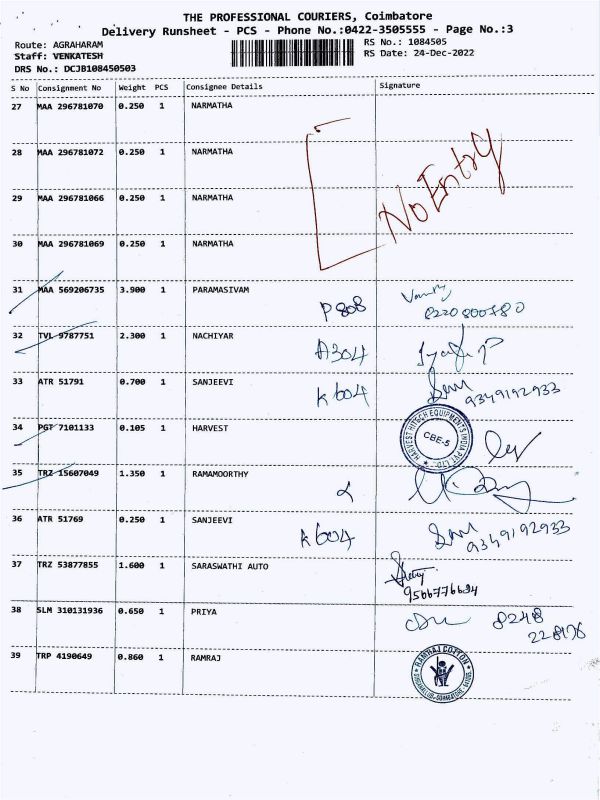 THE PROFESSIONAL COURIERS, Coimbatore
Delivery Runsheet - PCS - Phone No.:0422-3505555 - Page No.:3
Route: AGRAHARAM
RS No.: 1084505
Staff: VENKATESH
RS Date: 24-Dec-2022
DRS No.: DCJB108450503
S No Consignment No Weight PCS Consignee Details Signature
27 MAA 296781070 0.250 1 NARMATHA
28 MAA 296781072 0.250 1 NARMATHA
29 MAA 296781066 0.250 1 NARMATHA
30 MAA 296781069 0.250 1 NARMATHA
No Entry
31 MAA 569206735 3.900 1 PARAMASIVAM
P808
8220800780
32 TVL 9787751 2.300 1 NACHIYAR
A304
33 ATR 51791 0.700 1 SANJEEVI
K604
9349192933
34 PGT 7101133 0.105 1 HARVEST
HARVEST HITECH EQUIPMENTS INDIA PVT. LTD.
CBE-5
35 TRZ 15607049 1.350 1 RAMAMOORTHY
36 ATR 51769 0.250 1 SANJEEVI
K604
9349192933
37 TRZ 53877855 1.600 1 SARASWATHI AUTO
38 SLM 310131936 0.650 1 PRIYA
8248
39 TRP 4190649 0.860 1 RAMRAJ
RAMRAJ COTTON